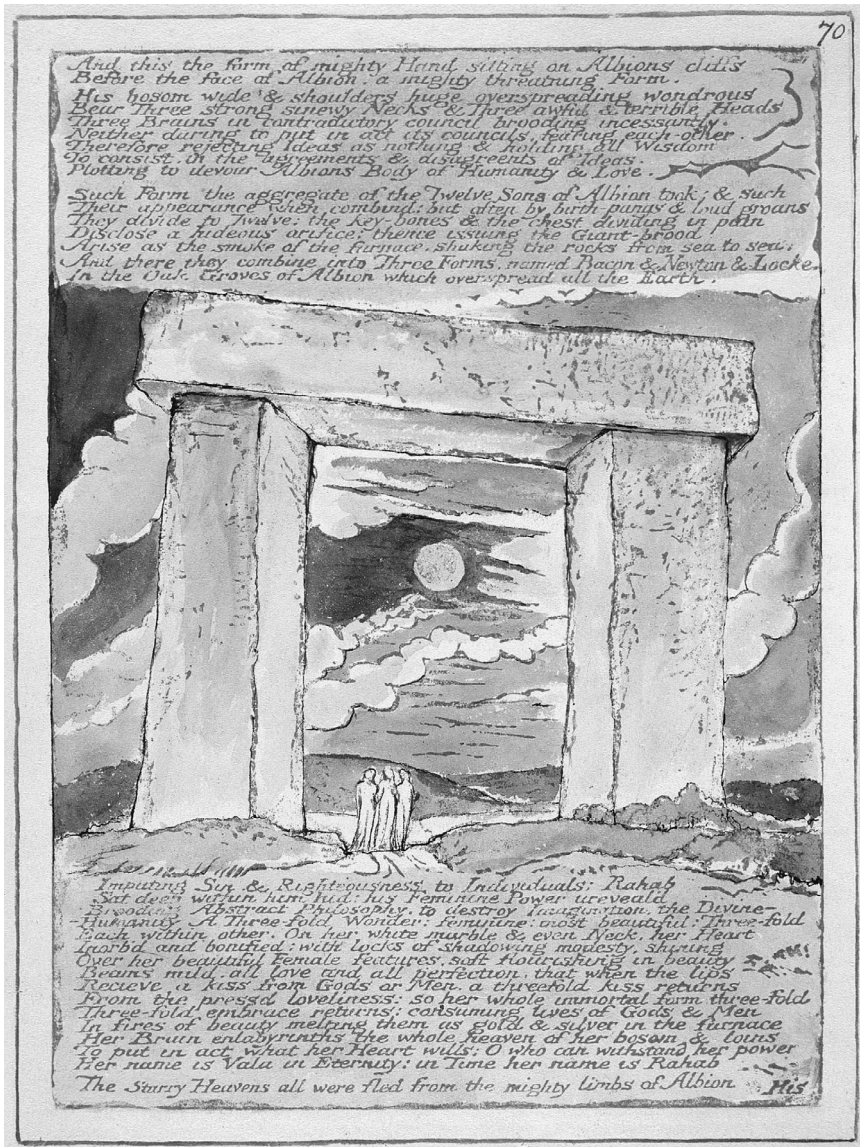 70
And this the form of mighty Hand sitting on Albions cliffs
Before the face of Albion, a mighty threatning Form.
His bosom wide & shoulders huge overspreading wondrous
Bear Three strong sinewy Necks & Three awful & terrible Heads
Three Brains in contradictory council brooding incessantly.
Neither daring to put in act its councils, fearing each-other,
Therefore rejecting Ideas as nothing & holding all Wisdom
To consist. in the agreements & disagreents of Ideas.
Plotting to devour Albions Body of Humanity & Love.
Such Form the aggregate of the Twelve Sons of Albion took; & such
Their appearance when combind: but often by birth-pangs & loud groans
They divide to Twelve: the key-bones & the chest dividing in pain
Disclose a hideous orifice; thence issuing the Giant-brood
Arise as the smoke of the furnace, shaking the rocks from sea to sea;
And there they combine into Three Forms, named Bacon & Newton & Locke,
In the Oak Groves of Albion which overspread all the Earth.
Imputing Sin & Righteousness to Individuals; Rahab
Sat deep within him hid: his Feminine Power unreveal'd
Brooding Abstract Philosophy, to destroy Imagination, the Divine-
-Humanity A Three-fold Wonder: feminine: most beautiful: Three-fold
Each within other. On her white marble & even Neck, her Heart
Inorb'd and bonified: with locks of shadowing modesty, shining
Over her beautiful Female features, soft flourishing in beauty
Beams mild, all love and all perfection, that when the lips
Recieve a kiss from Gods or Men, a threefold kiss returns
From the pressd loveliness: so her whole immortal form three-fold
Three-fold embrace returns: consuming lives of Gods & Men
In fires of beauty melting them as gold & silver in the furnace
Her Brain enlabyrinths the whole heaven of her bosom & loins
To put in act what her Heart wills; O who can withstand her power
Her name is Vala in Eternity: in Time her name is Rahab
The Starry Heavens all were fled from the mighty limbs of Albion
His